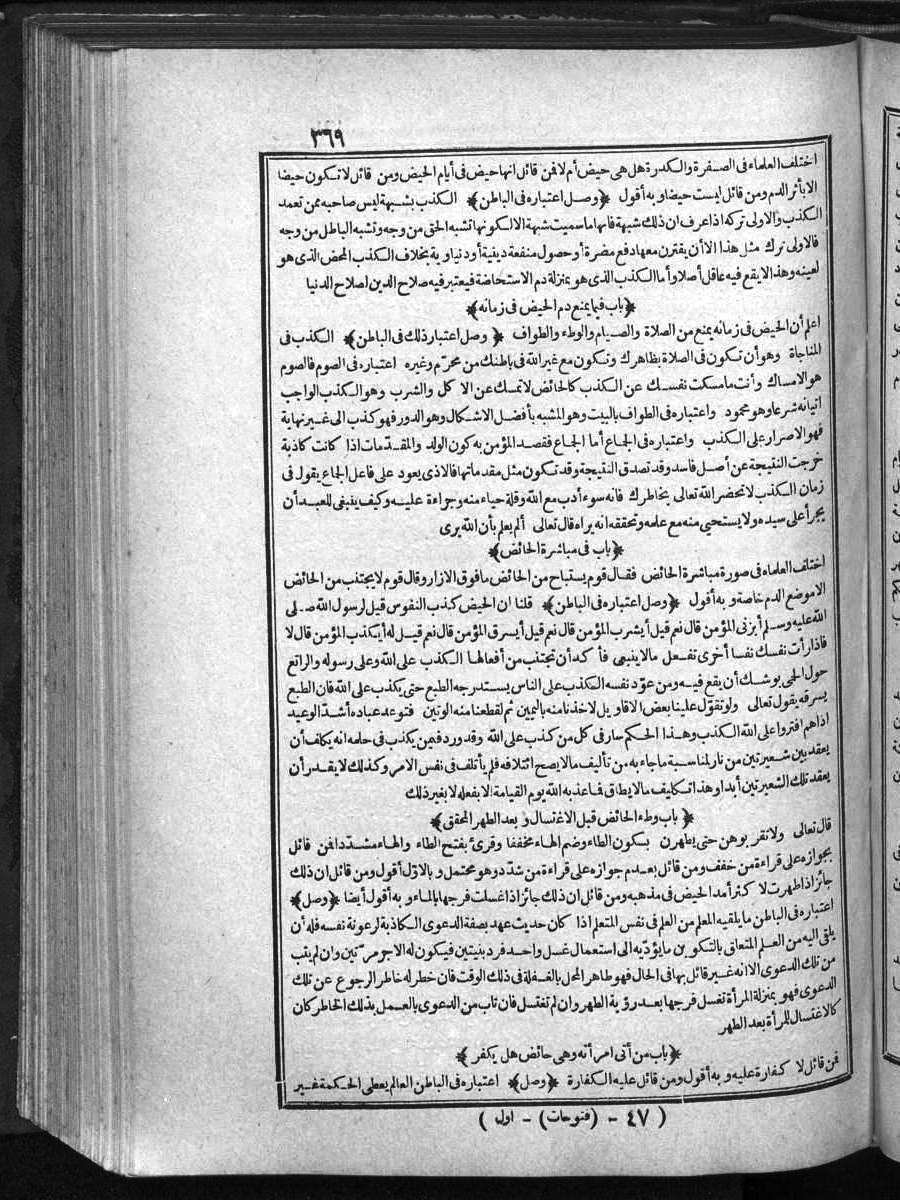 ٣٦٩
اختلف العلماء فى الصفرة والكدرة هل هى حيض أم لا فمن قائل انها حيض فى أيام الحيض ومن قائل لا تكون حيضا
الا بأثر الدم ومن قائل ليست حيضا وبه أقول ﴿وصل اعتباره فى الباطن﴾ الكذب بشبهة ليس صاحبه ممن تعمد
الكذب والاولى تركه اذا عرف ان ذلك شبهة فانها ما سميت شبهة الا لكونها تشبه الحق من وجه وتشبه الباطل من وجه
فالاولى ترك مثل هذا الا أن يقترن معها دفع مضرة أو حصول منفعة دينية أو دنياوية بخلاف الكذب المحض الذى هو
لعينه وهذا لا يقع فيه عاقل أصلا وأما الكذب الذى هو بمنزلة دم الاستحاضة فيعتبر فيه صلاح الدين لصلاح الدنيا
﴿باب فيما يمنع دم الحيض فى زمانه﴾
اعلم أن الحيض فى زمانه يمنع من الصلاة والصيام والوطء والطواف ﴿وصل اعتبار ذلك فى الباطن﴾ الكذب فى
المناجاة وهو أن تكون فى الصلاة بظاهرك وتكون مع غير الله فى باطنك من محرّم وغيره اعتباره فى الصوم فالصوم
هو الامساك وأنت ما مسكت نفسك عن الكذب كالحائض لا تمسك عن الاكل والشرب وهو الكذب الواجب
اتيانه شرعا وهو محمود واعتباره فى الطواف بالبيت وهو المشبه بأفضل الاشكال وهو الدور فهو كذب الى غير نهاية
فهو الاصرار على الكذب واعتباره فى الجماع أما الجماع فقصد المؤمن به كون الولد والمقدّمات اذا كانت كاذبة
خرجت النتيجة عن أصل فاسد وقد تصدق النتيجة وقد تكون مثل مقدماتها فالاذى يعود على فاعل الجماع يقول فى
زمان الكذب لا تحضر الله تعالى بخاطرك فانه سوء أدب مع الله وقلة حياء منه وجراءة عليه وكيف ينبغى للعبد أن
يجرأ على سيده ولا يستحيى منه مع علمه وتحققه انه يراه قال تعالى ألم يعلم بأن الله يرى
﴿باب فى مباشرة الحائض﴾
اختلف العلماء فى صورة مباشرة الحائض فقال قوم يستباح من الحائض ما فوق الازار وقال قوم لا يجتنب من الحائض
الا موضع الدم خاصة وبه أقول ﴿وصل اعتباره فى الباطن﴾ قلنا ان الحيض كذب النفوس قيل لرسول الله صلى
الله عليه وسلم أيزنى المؤمن قال نعم قيل أيشرب المؤمن قال نعم قيل أيسرق المؤمن قال نعم قيل له أيكذب المؤمن قال لا
فاذا رأت نفسك نفسا أخرى تفعل ما لا ينبغى فأكد أن تجتنب من أفعالها الكذب على الله وعلى رسوله والراتع
حول الحمى يوشك أن يقع فيه ومن عوّد نفسه الكذب على الناس يستدرجه الطبع حتى يكذب على الله فان الطبع
يسرقه يقول تعالى ولو تقوّل علينا بعض الاقاويل لاخذنا منه باليمين ثم لقطعنا منه الوتين فتوعد عباده أشدّ الوعيد
اذا هم افتروا على الله الكذب وهذا الحكم سار فى كل من كذب على الله وقد ورد فيمن يكذب فى حلمه انه يكلف أن
يعقد بين شعيرتين من نار لمناسبة ما جاء به من تأليف ما لا يصح ائتلافه فلم يأتلف فى نفس الامر وكذلك لا يقدر أن
يعقد تلك الشعيرتين أبدا وهذا تكليف ما لا يطاق فما عذبه الله يوم القيامة الا بفعله لا بغير ذلك
﴿باب وطء الحائض قبل الاغتسال وبعد الطهر المحقق﴾
قال تعالى ولا تقربوهن حتى يطهرن بسكون الطاء وضم الهاء مخففا وقرئ بفتح الطاء والهاء مشدّدا فمن قائل
بجوازه على قراءة من خفف ومن قائل بعدم جوازه على قراءة من شدّد وهو محتمل وبالاوّل أقول ومن قائل ان ذلك
جائز اذا طهرت لاكثر أمد الحيض فى مذهبه ومن قائل ان ذلك جائز اذا غسلت فرجها بالماء وبه أقول أيضا ﴿وصل﴾
اعتباره فى الباطن ما يلقيه المعلم من العلم فى نفس المتعلم اذا كان حديث عهد بصفة الدعوى الكاذبة لرعونة نفسه فله أن
يلقى اليه من العلم المتعلق بالتكوين ما يؤدّيه الى استعمال غسل واحد فرد بنيتين فيكون له الاجر مرّتين وان لم يتب
من تلك الدعوى الا انه غير قائل بها فى الحال فهو طاهر المحل بالغفلة فى ذلك الوقت فان خطر له خاطر الرجوع عن تلك
الدعوى فهو بمنزلة المرأة تغسل فرجها بعد رؤية الطهر وان لم تغتسل فان تاب من الدعوى بالعمل بذلك الخاطر كان
كالاغتسال للمرأة بعد الطهر
﴿باب من أتى امرأته وهى حائض هل يكفر﴾
فمن قائل لا كفارة عليه وبه أقول ومن قائل عليه الكفارة ﴿وصل﴾ اعتباره فى الباطن العالم يعطى الحكمة غير
( ٤٧ - (فتوحات) - اول )